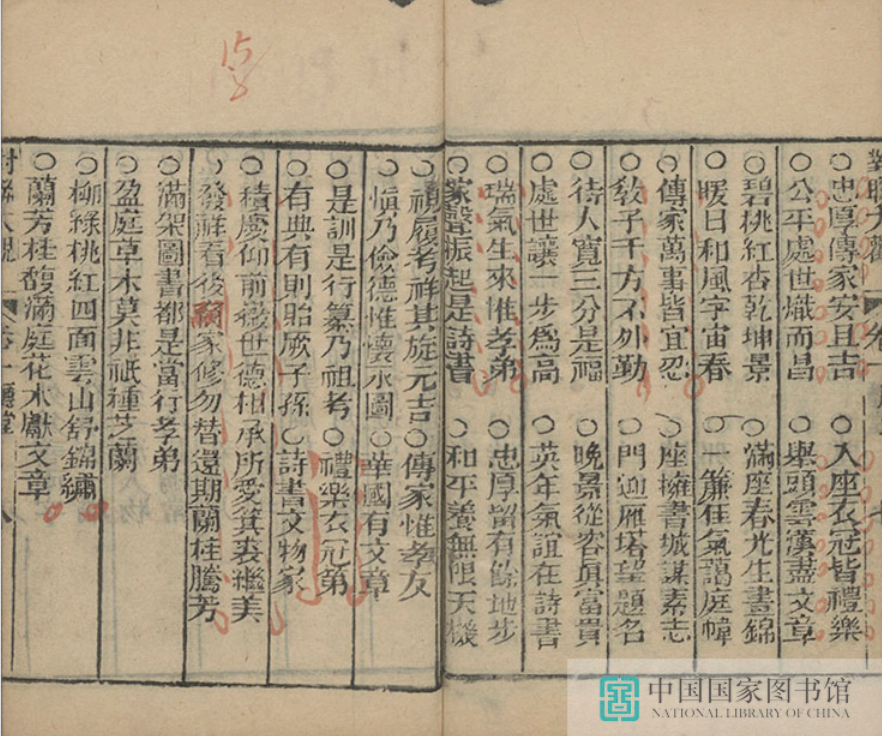 對聯大觀 卷一
○忠厚傳家安且吉 ○入座衣冠皆禮樂
○公平處世熾而昌 ○舉頭雲漢盡文章
○碧桃紅杏乾坤景 ○滿座春光生晝錦
○暖日和風宇宙春 ○一簾佳氣藹庭幃
○傳家萬事皆宜忍 ○座擁書城謀素志
○教子千方不外勤 ○門迎雁塔望題名
○待人寬三分是福 ○晚景從容眞富貴
○處世讓一步爲高 ○英年氣誼在詩書
○瑞氣生來惟孝弟 ○忠厚留有餘地步
○家聲振起是詩書 ○和平養無限天機
○視履考祥其旋元吉 ○傳家惟孝友
○愼乃儉德惟懷永圖 ○華國有文章
○是訓是行纂乃祖考 ○禮樂衣冠第
○有典有則貽厥子孫 ○詩書文物家
○積慶仰前徽世德相承所愛箕裘繼美
○發祥看後嗣家修勿替還期蘭桂騰芳
○滿架圖書都是當行孝弟
○盈庭草木莫非祇種芝蘭
○柳綠桃紅四面雲山舒錦繡
○蘭芳桂馥滿庭花木獻文章
對聯大觀 卷一 廳堂 八
中国国家图书馆
NATIONAL LIBRARY OF CHINA